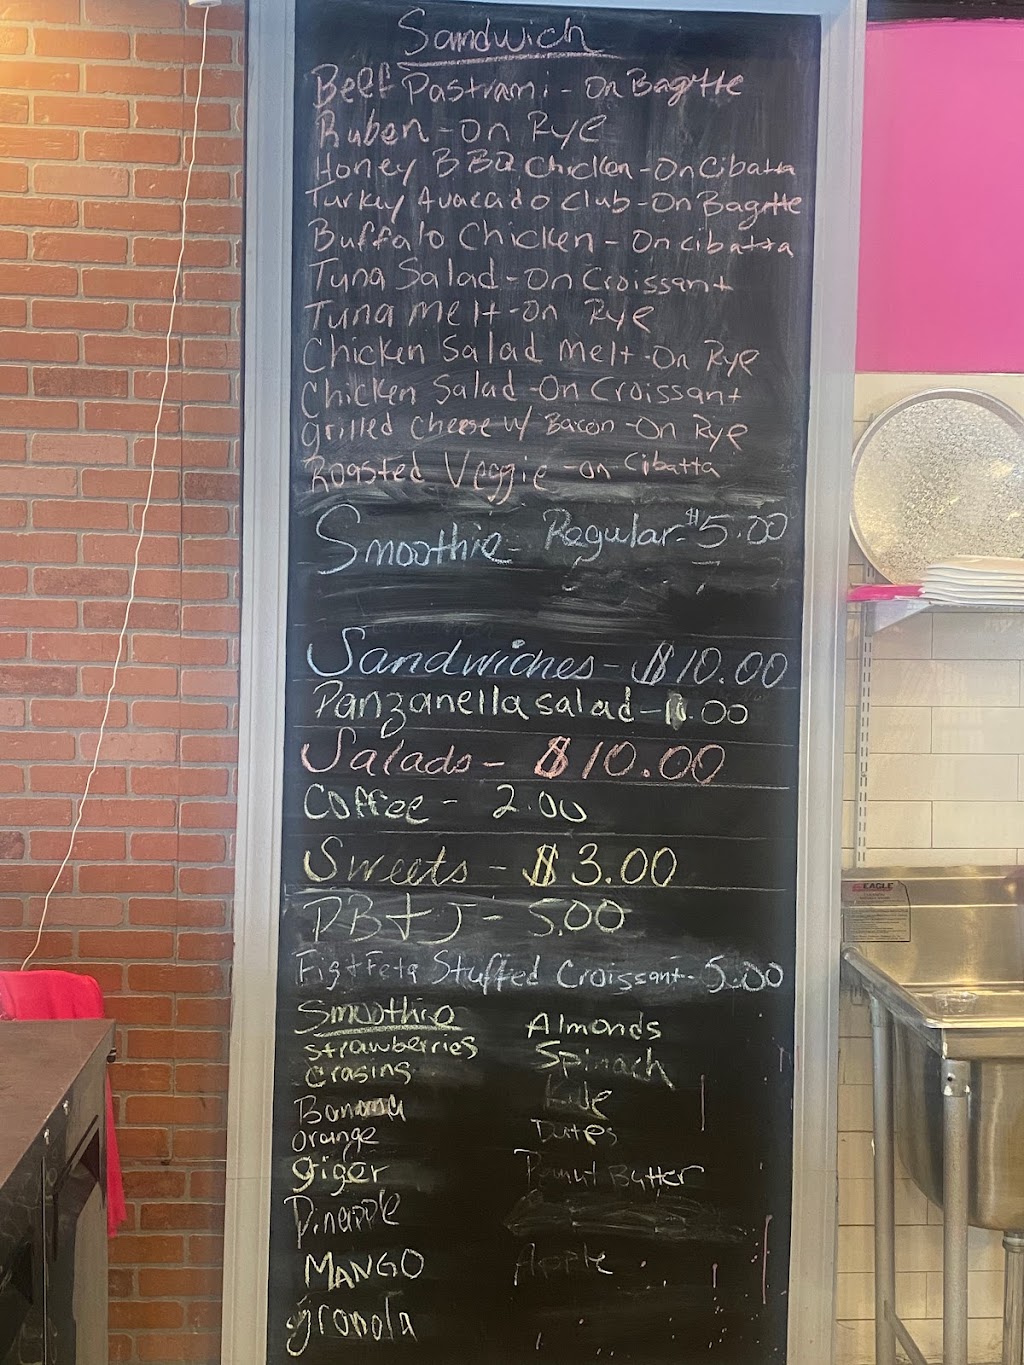 Sandwich
Beef Pastrami - On Bagette
Ruben - On Rye
Honey BBQ Chicken - On Cibatta
Turkey Avacado Club - On Bagette
Buffalo Chicken - On Cibatta
Tuna Salad - On Croissant
Tuna Melt - On Rye
Chicken Salad Melt - On Rye
Chicken Salad - On Croissant
grilled cheese w/ Bacon - On Rye
Roasted Veggie - on Cibatta
Smoothie - Regular - $5.00
Sandwiches - $10.00
Panzanella salad - 10.00
Salads - $10.00
Coffee - 2.00
Sweets - $3.00
PB+J - 5.00
Fig + Feta Stuffed Croissant - 5.00
Smoothie
strawberries
Crasins
Banana
orange
giger
Pineapple
MANGO
granola
Almonds
Spinach
Dates
Peanut Butter
Apple
EAGLE